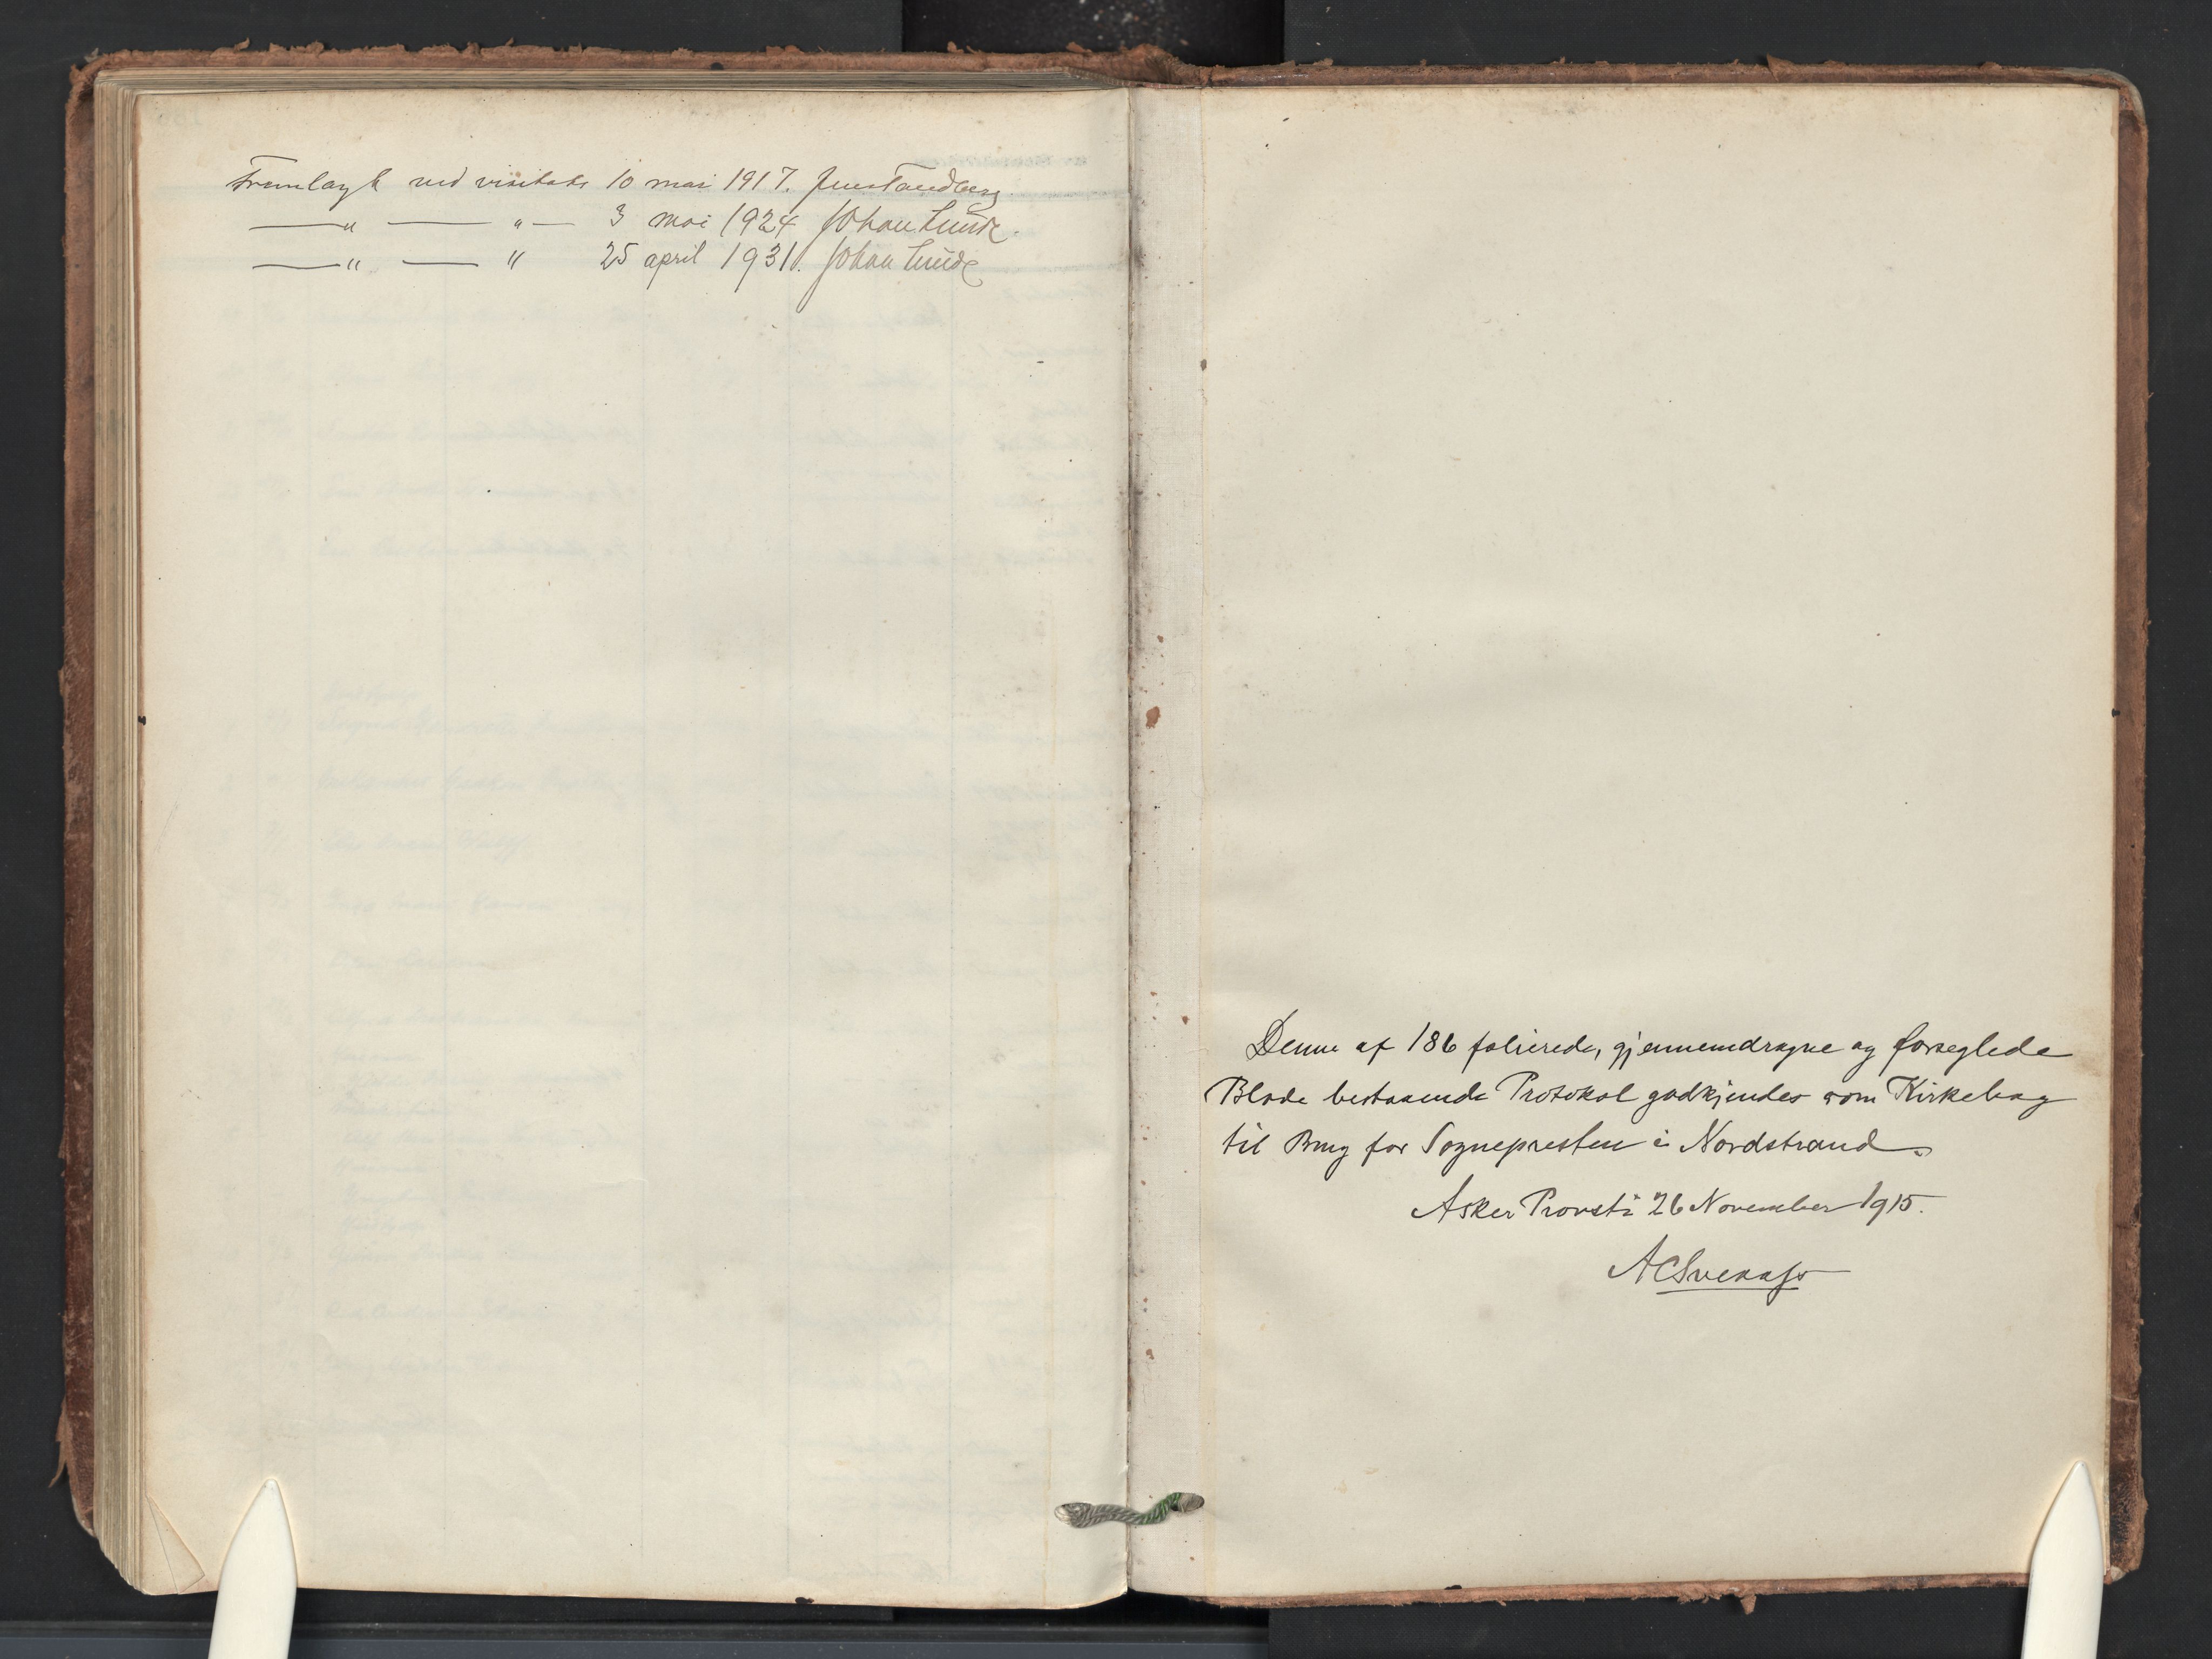 Fremlagt ved visitats 10 mai 1917. Jens Tandberg.
— " — " — 3 mai 1924 Johan Lunde.
— " — " 25 april 1931. Johan Lunde
Denne af 186 folierede, gjennemdragne og forseglede
Blade bestaaende Protokol godkjendes som Kirkebog
til Brug for Sognepresten i Nordstrand.
Asker Provsti 26 November 1915.